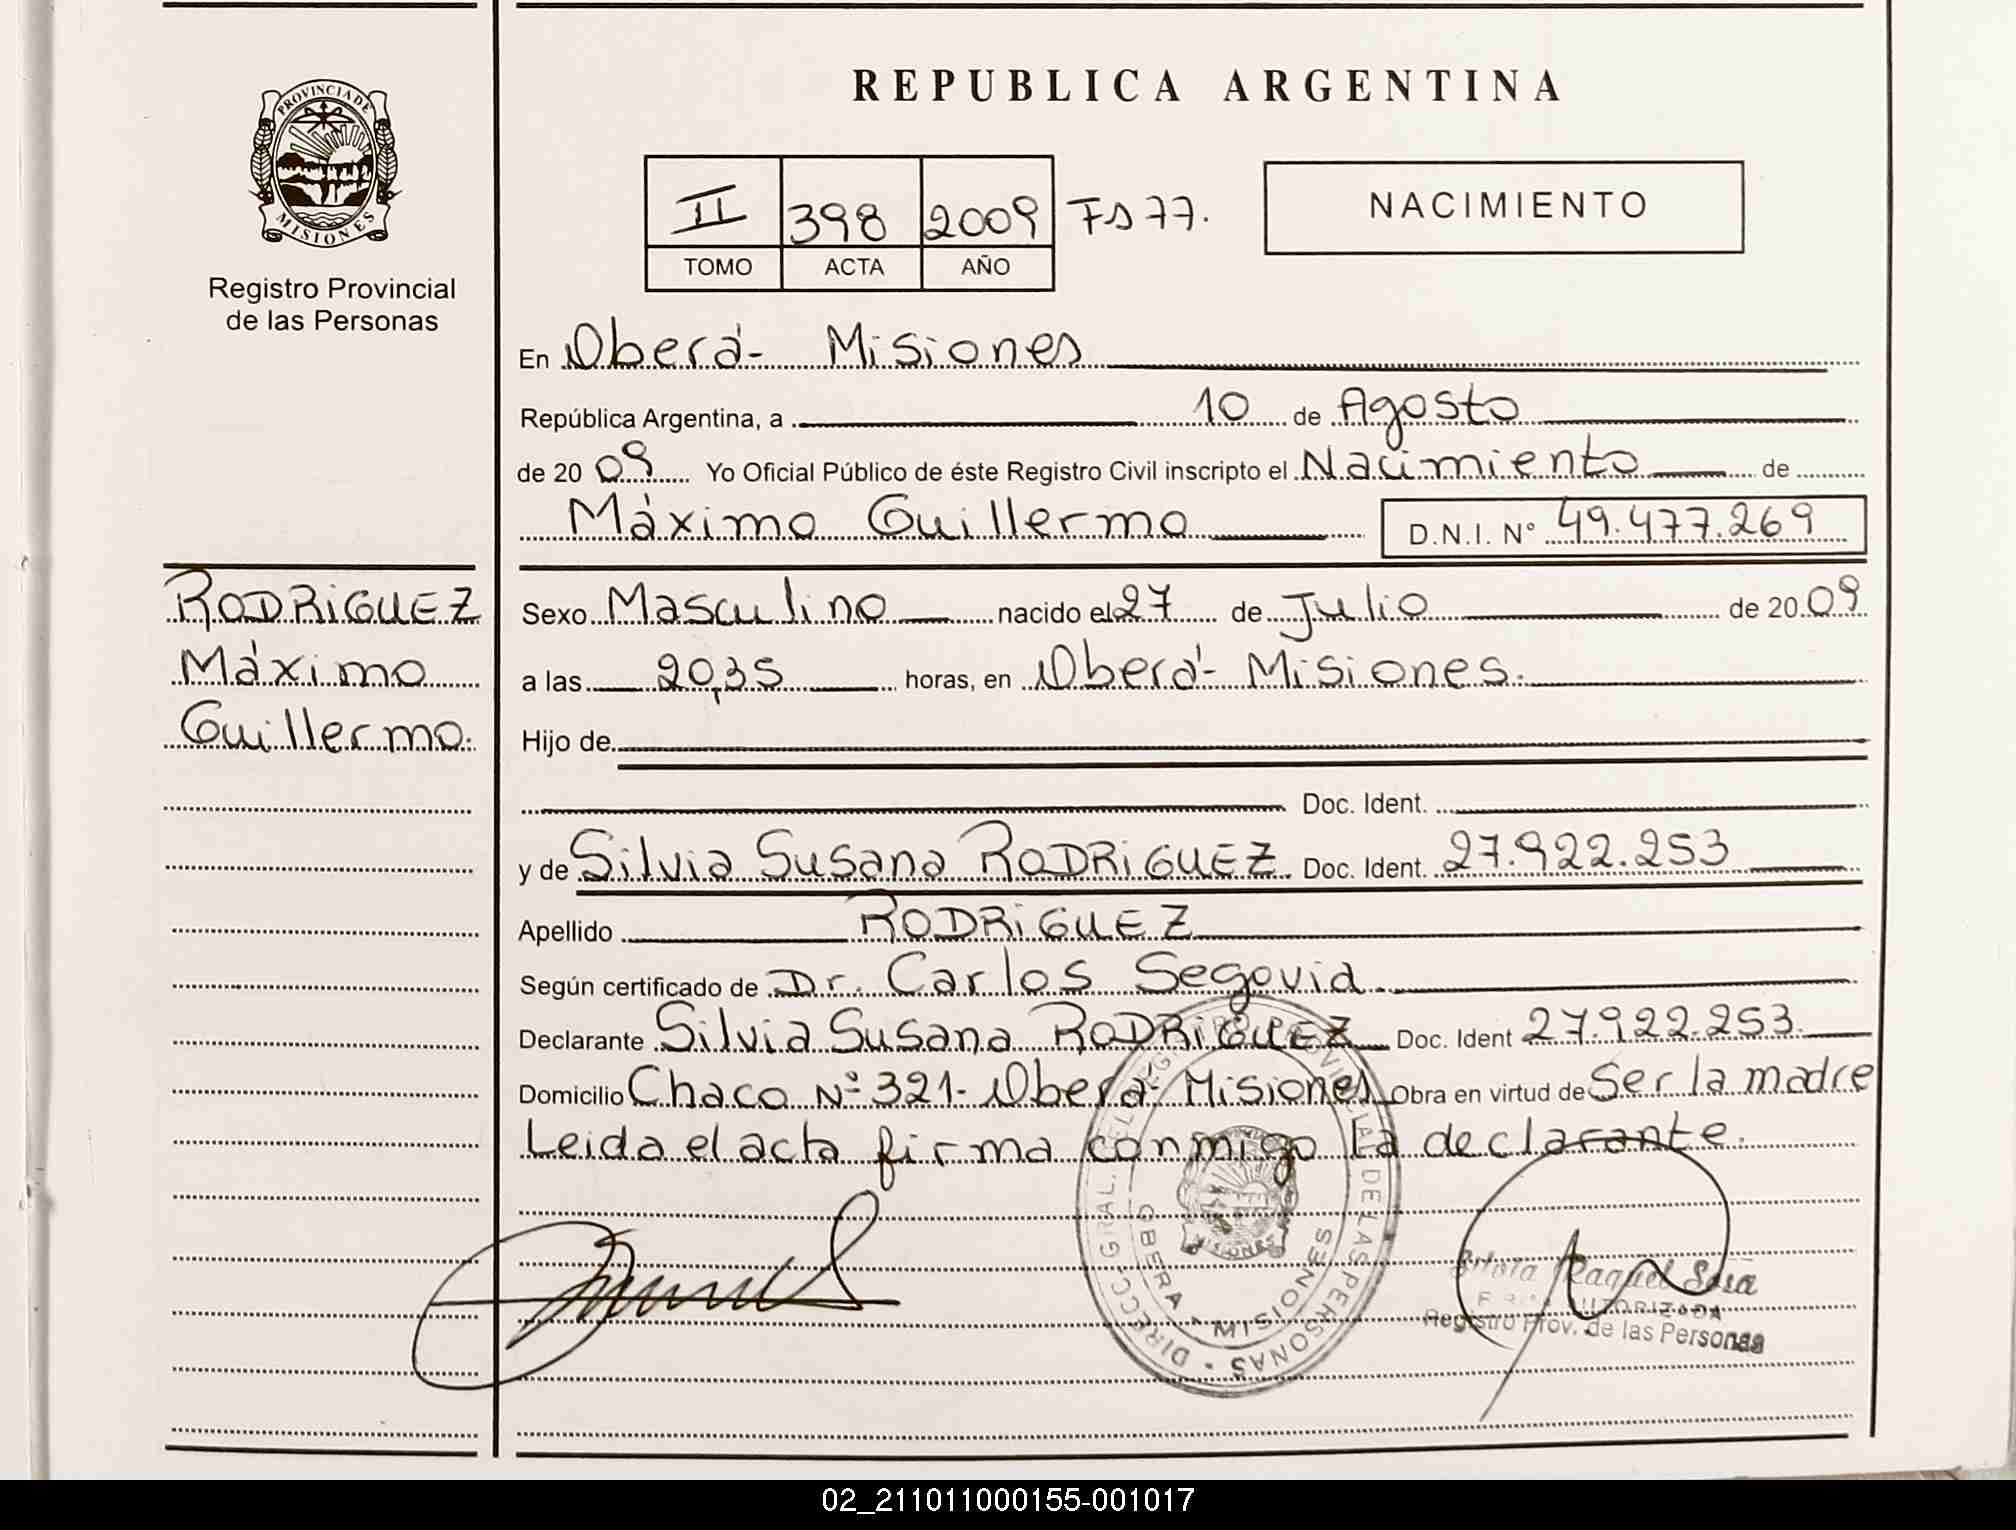 PROVINCIA DE
MISIONES
Registro Provincial
de las Personas
REPUBLICA ARGENTINA
II 398 2009 Fs 77.
TOMO ACTA AÑO
NACIMIENTO
En Oberá - Misiones
República Argentina, a 10 de Agosto
de 20 09 Yo Oficial Público de éste Registro Civil inscripto el Nacimiento de
Máximo Guillermo D.N.I. N° 49.477.269
RODRIGUEZ
Máximo
Guillermo.
Sexo Masculino nacido el 27 de Julio de 20 09
a las 20,35 horas, en Oberá - Misiones.
Hijo de
Doc. Ident.
y de Silvia Susana RODRIGUEZ Doc. Ident. 27.922.253
Apellido RODRIGUEZ
Según certificado de Dr. Carlos Segovia
Declarante Silvia Susana RODRIGUEZ Doc. Ident 27.922.253
Domicilio Chaco N° 321 - Oberá - Misiones Obra en virtud de Ser la madre
Leida el acta firma conmigo la declarante.
DIRECC. GRAL. DEL REGISTRO PROVINCIAL DE LAS PERSONAS
OBERA - MISIONES
MISIONES
Raquel Sosa
AUTORIZADA
Registro Prov. de las Personas
02_211011000155-001017